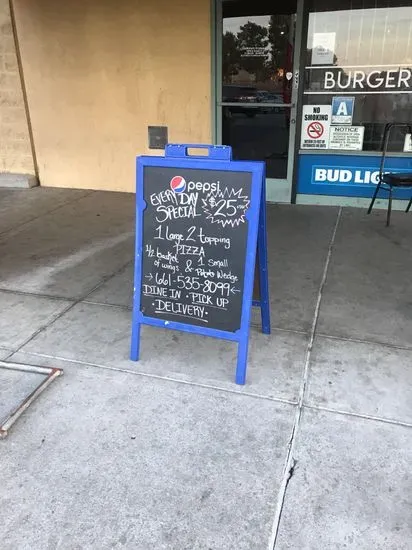 pepsi
EVERY DAY
SPECIAL
$25
1 Large 2 topping
PIZZA
1/2 basket & 1 Small
of wings Potato Wedge
661-535-8099
DINE IN · PICK UP
· DELIVERY ·
BURGER
NO
SMOKING
A
NOTICE
BUD LIG